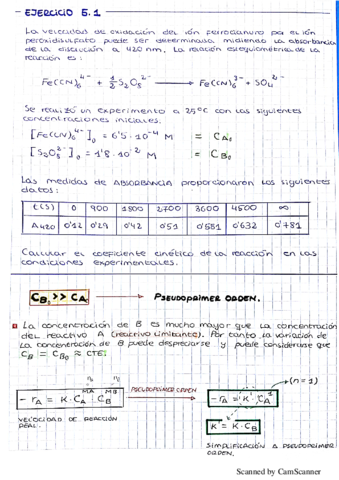 EJERCICIO 5.1
La velocidad de oxidación del ión ferrocianuro por el ión
peroxidisulfato puede ser determinada midiendo la absorbancia
de la disolución a 420 nm. La relación estequiométrica de la
reacción es:
Fe(CN)₆⁴⁻ + 1/2 S₂O₈²⁻ → Fe(CN)₆³⁻ + SO₄²⁻
Se realizó un experimento a 25ºC con las siguientes
concentraciones iniciales:
[Fe(CN)₆⁴⁻]₀ = 6'5·10⁻⁴ M = CA₀
[S₂O₈²⁻]₀ = 1'8·10⁻² M = CB₀
Las medidas de ABSORBANCIA proporcionaron los siguientes
datos:
t(s) 0 900 1800 2700 3600 4500 ∞
A420 0'12 0'29 0'42 0'51 0'581 0'632 0'781
Calcular el coeficiente cinético de la reacción en las
condiciones experimentales.
CB₀ >> CA₀ → PSEUDOPRIMER ORDEN.
La concentración de B es mucho mayor que la concentración
del reactivo A (reactivo limitante). Por tanto la variación de
la concentración de B puede despreciarse y puede considerarse que
CB = CB₀ ≈ CTE.
PSEUDOPRIMER ORDEN
(n=1)
-rA = K·CA·CB
-rA = K·CA¹
VELOCIDAD DE REACCIÓN
REAL.
K = K·CB
SIMPLIFICACIÓN A PSEUDOPRIMER
ORDEN.
Scanned by CamScanner